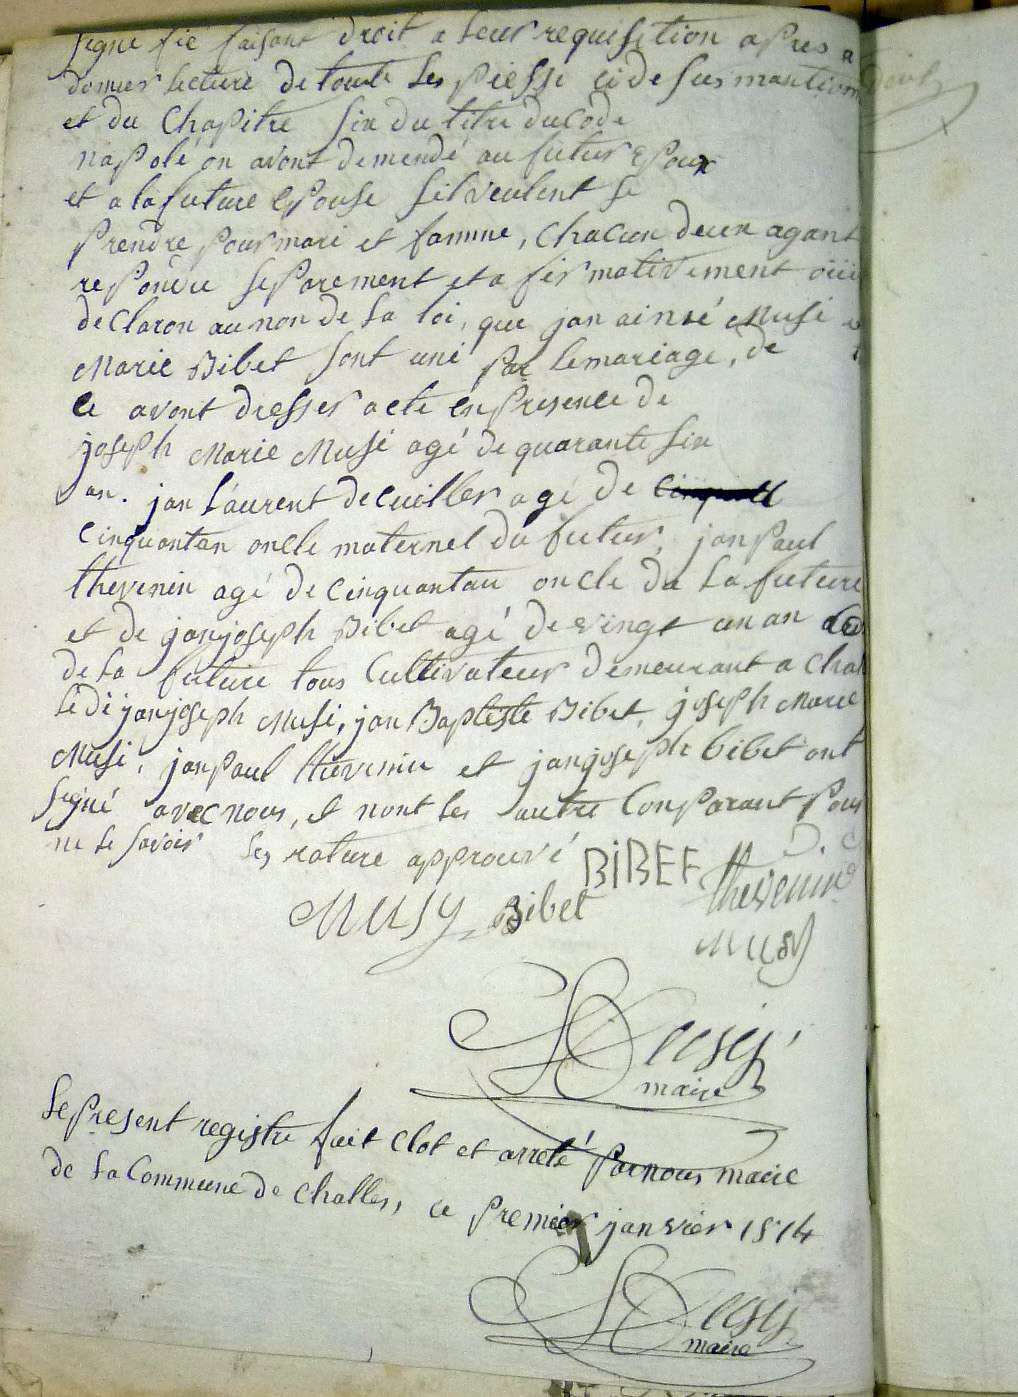 signe fie faisant droit a leur requisition apres a
donner lecture de toute les piesse ci desus mantion
et du Chapitre six du titre du Code
napoléon avont demendé au futur epoux
et a la future epouse sil veulent se
prendre pour mari et famme, chacun deux agant
repondu separement et a firmativement oüi
declaron au non de la loi, que jan ainmé Musi e
Marie Bibet sont uni par le mariage, de
ce avont dresser acte en presence de
joseph Marie Musi agé de quarante six
an. jan Laurent decuiller agé de
cinquantan oncle maternel du futur, jan paul
thevenin agé de cinquantan oncle du la future
et de janjoseph Bibet agé de vingt un an
de la future tous Cultivateur demeurant a Chal
le di janjoseph Musi, jan Baptiste Bibet, joseph Marie
Musi, janpaul thevenin et janjoseph bibet ont
signé avec nous, et nont les autre Comparant pour
ne le savoir les rature approuvé
BiBEt thevenin
MUSY Bibet
MUSY
maire
Le present registre fait clot et arreté par nous maire
de la Commune de challes, ce premier janvier 1814
maire